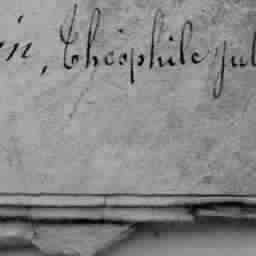 in, Théophile Jul